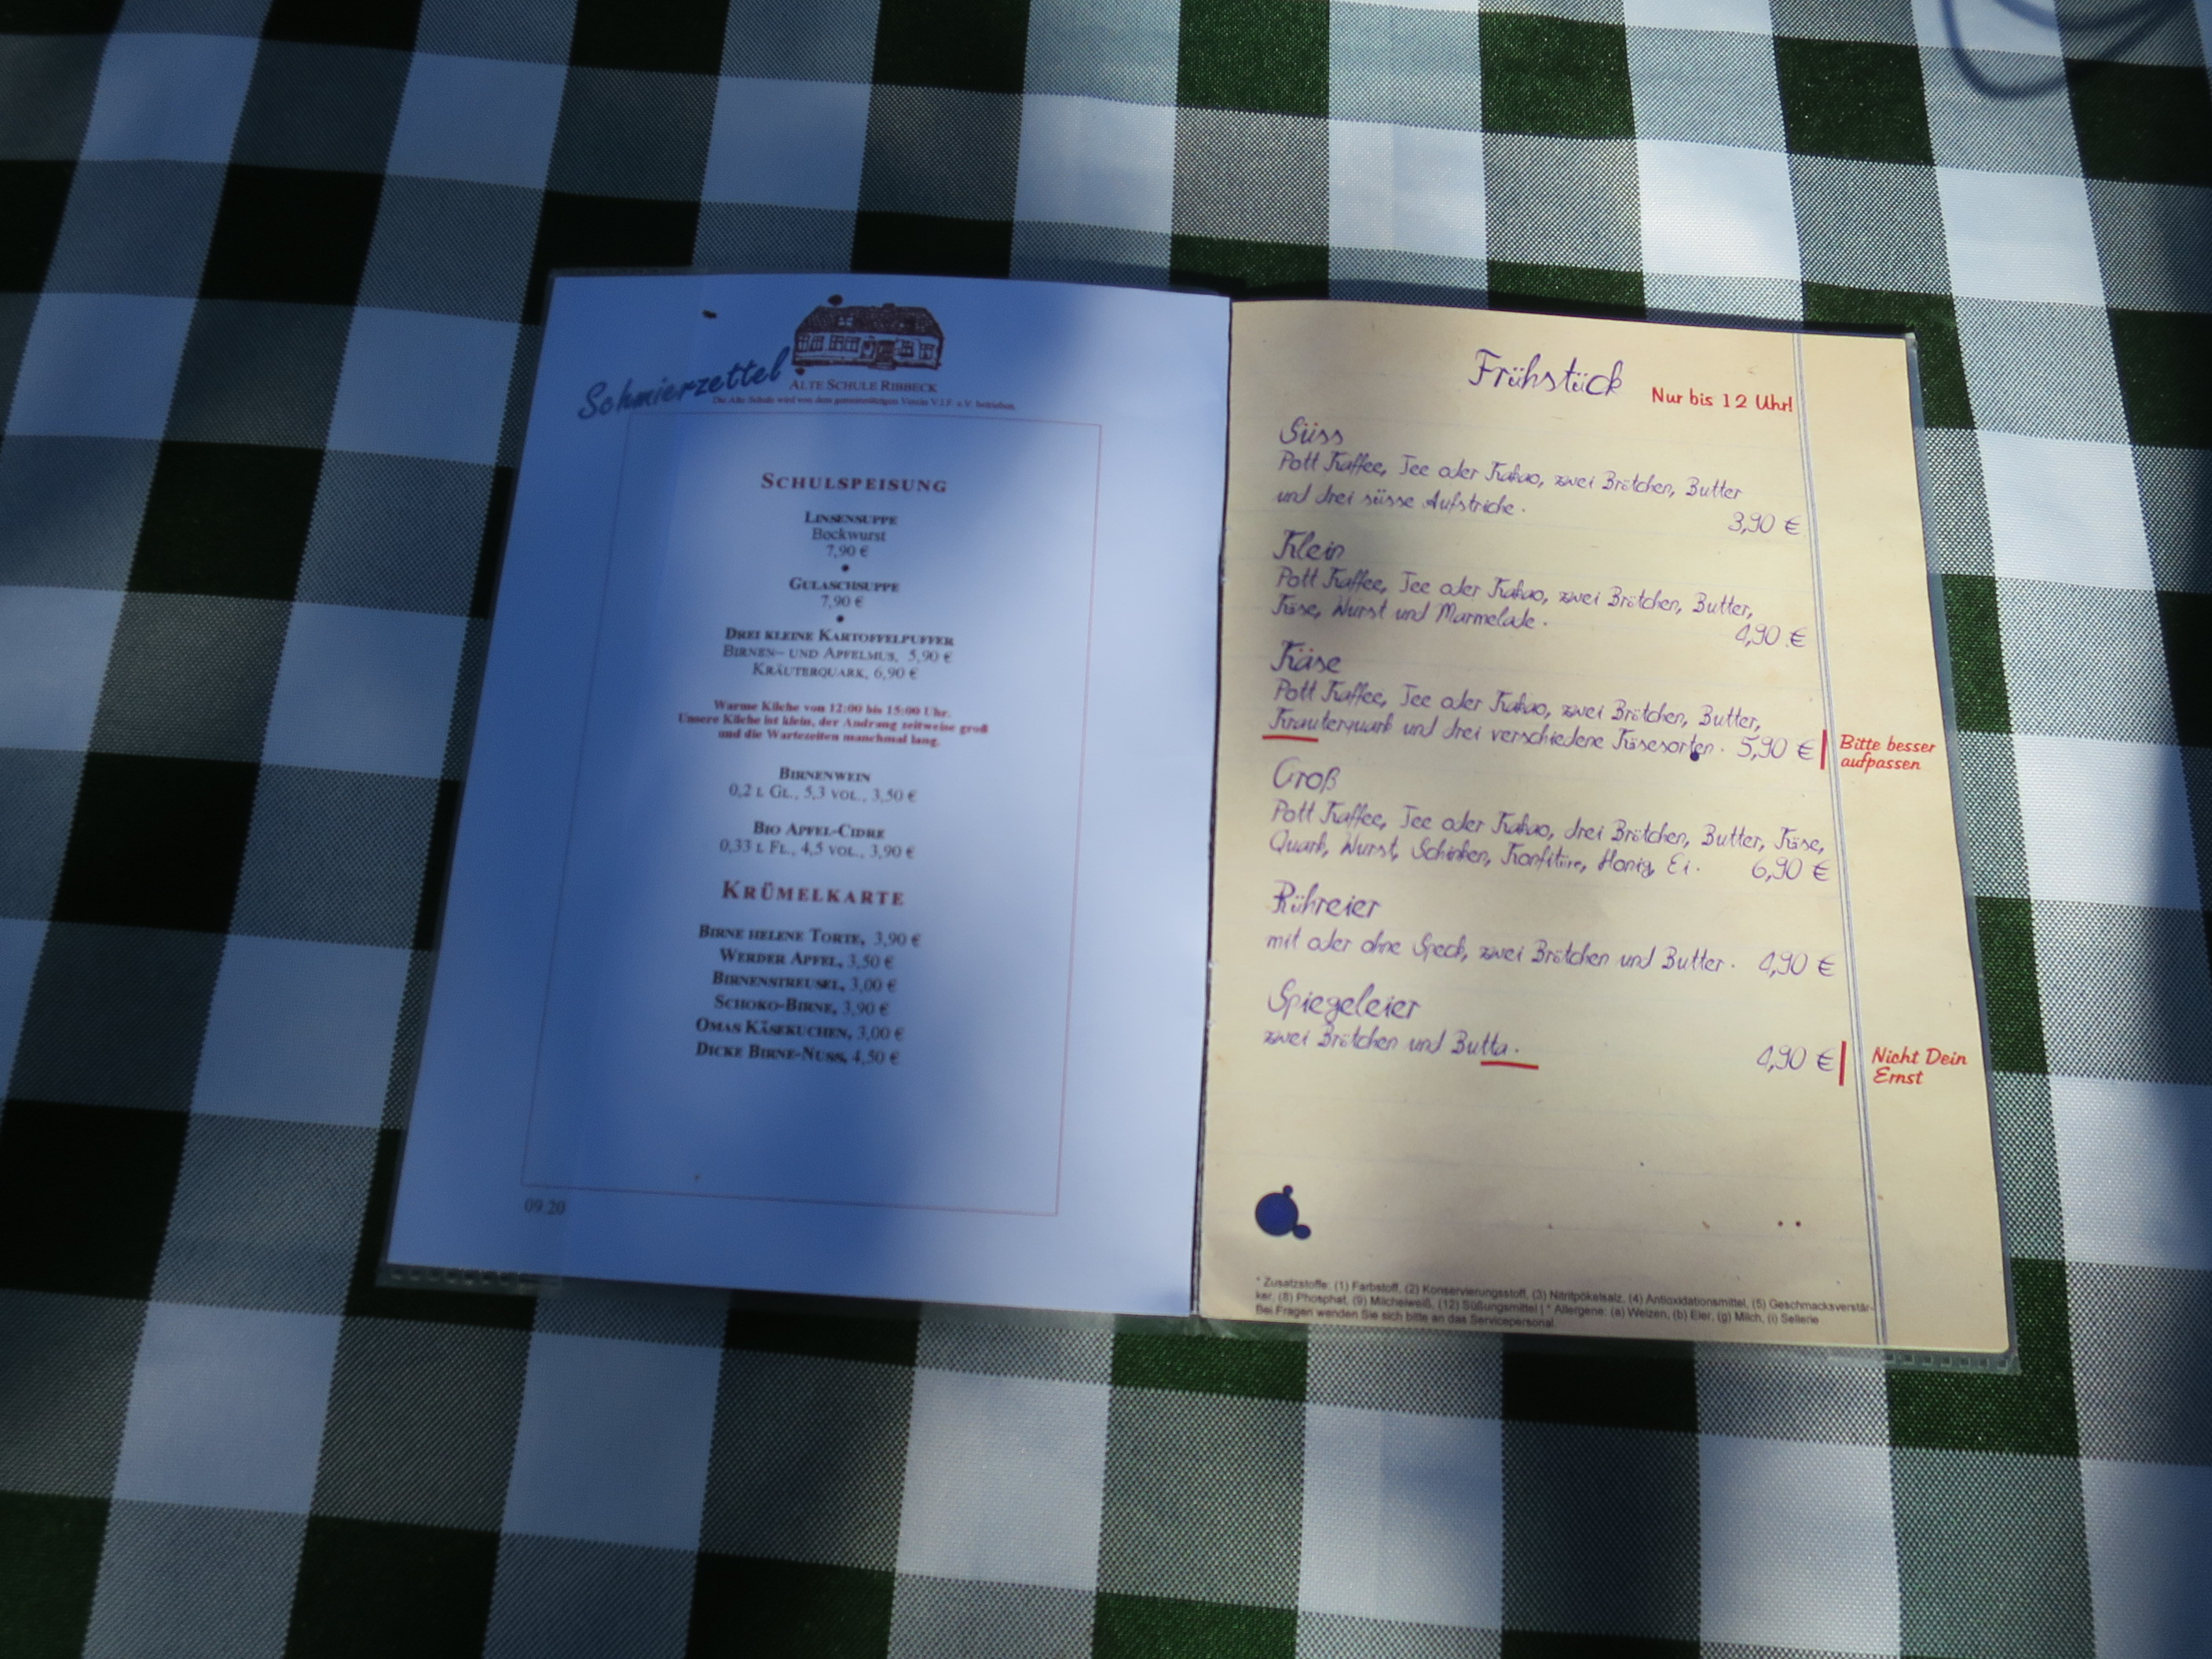 Schmierzettel
ALTE SCHULE RIBBECK
Die Alte Schule wird von dem gemeinnützigen Verein V.I.F. e.V. betrieben.
SCHULSPEISUNG
LINSENSUPPE
Bockwurst
7,90 €
•
GULASCHSUPPE
7,90 €
•
DREI KLEINE KARTOFFELPUFFER
BIRNEN- UND APFELMUS, 5,90 €
KRÄUTERQUARK, 6,90 €
Warme Küche von 12:00 bis 15:00 Uhr.
Unsere Küche ist klein, der Andrang zeitweise groß
und die Wartezeiten manchmal lang.
BIRNENWEIN
0,2 L GL., 5,3 VOL., 3,50 €
BIO APFEL-CIDRE
0,33 L FL., 4,5 VOL., 3,90 €
KRÜMELKARTE
BIRNE HELENE TORTE, 3,90 €
WERDER APFEL, 3,50 €
BIRNENSTREUSEL, 3,00 €
SCHOKO-BIRNE, 3,90 €
OMAS KÄSEKUCHEN, 3,00 €
DICKE BIRNE-NUSS, 4,50 €
09.20
Frühstück Nur bis 12 Uhr!
Süss
Pott Kaffee, Tee oder Kakao, zwei Brötchen, Butter
und drei süsse Aufstriche.
3,90 €
Klein
Pott Kaffee, Tee oder Kakao, zwei Brötchen, Butter,
Käse, Wurst und Marmelade.
4,90 €
Käse
Pott Kaffee, Tee oder Kakao, zwei Brötchen, Butter,
Krauterquark und drei verschiedene Käsesorten. 5,90 €
Bitte besser
aufpassen
Groß
Pott Kaffee, Tee oder Kakao, drei Brötchen, Butter, Käse,
Quark, Wurst, Schinken, Konfitüre, Honig, Ei. 6,90 €
Rühreier
mit oder ohne Speck, zwei Brötchen und Butter. 4,90 €
Spiegeleier
zwei Brötchen und Butta. 4,90 €
Nicht Dein
Ernst
* Zusatzstoffe: (1) Farbstoff, (2) Konservierungsstoff, (3) Nitritpökelsalz, (4) Antioxidationsmittel, (5) Geschmacksverstär-
ker, (8) Phosphat, (9) Milcheiweiß, (12) Süßungsmittel | * Allergene: (a) Weizen, (b) Eier, (g) Milch, (i) Sellerie
Bei Fragen wenden Sie sich bitte an das Servicepersonal.